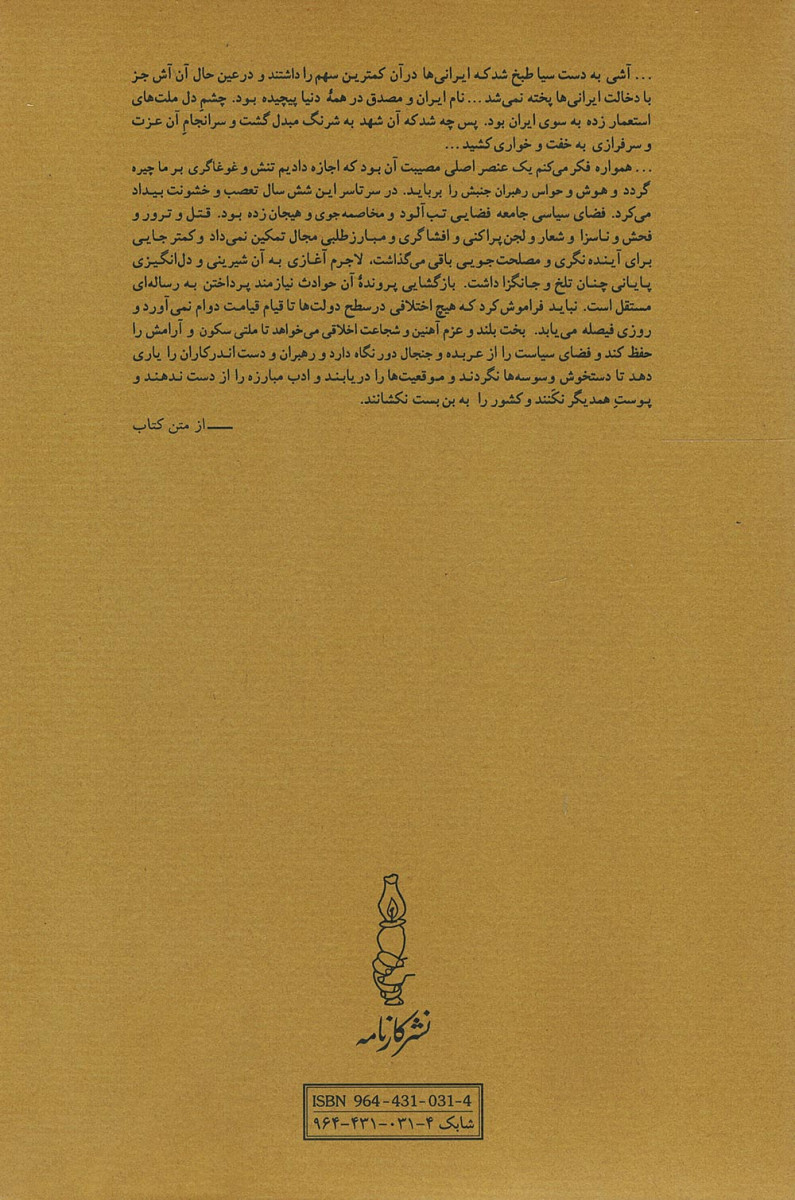 ... آشی به دست سیا طبخ شد که ایرانی‌ها در آن کمترین سهم را داشتند و در عین حال آن آش جز
با دخالت ایرانی‌ها پخته نمی‌شد ... نام ایران و مصدق در همهٔ دنیا پیچیده بود. چشمِ دل ملت‌های
استعمار زده به سوی ایران بود. پس چه شد که آن شهد به شرنگ مبدل گشت و سرانجامِ آن عزت
و سرفرازی به خفت و خواری کشید ...
... همواره فکر می‌کنم یک عنصر اصلی مصیبت آن بود که اجازه دادیم تنش و غوغاگری بر ما چیره
گردد و هوش و حواس رهبران جنبش را برباید. در سرتاسر این شش سال تعصب و خشونت بیداد
می‌کرد. فضای سیاسی جامعه فضایی تب‌آلود و مخاصمه‌جوی و هیجان‌زده بود. قتل و ترور و
فحش و ناسزا و شعار و لجن‌پراکنی و افشاگری و مبارزطلبی مجال تمکین نمی‌داد و کمتر جایی
برای آینده‌نگری و مصلحت‌جویی باقی می‌گذاشت، لاجرم آغازی به آن شیرینی و دل‌انگیزی
پایانی چنان تلخ و جانگزا داشت. بازگشایی پروندهٔ آن حوادث نیازمند پرداختن به رساله‌ای
مستقل است. نباید فراموش کرد که هیچ اختلافی در سطح دولت‌ها تا قیام قیامت دوام نمی‌آورد و
روزی فیصله می‌یابد. بخت بلند و عزم آهنین و شجاعت اخلاقی می‌خواهد تا ملتی سکون و آرامش را
حفظ کند و فضای سیاست را از عربده و جنجال دور نگاه دارد و رهبران و دست‌اندرکاران را یاری
دهد تا دستخوش وسوسه‌ها نگردند و موقعیت‌ها را دریابند و ادب مبارزه را از دست ندهند و
پوستِ همدیگر نکَنند و کشور را به بن‌بست نکشانند.
—— از متن کتاب
نشر کارنامه
ISBN 964-431-031-4
شابک ۴-۰۳۱-۴۳۱-۹۶۴